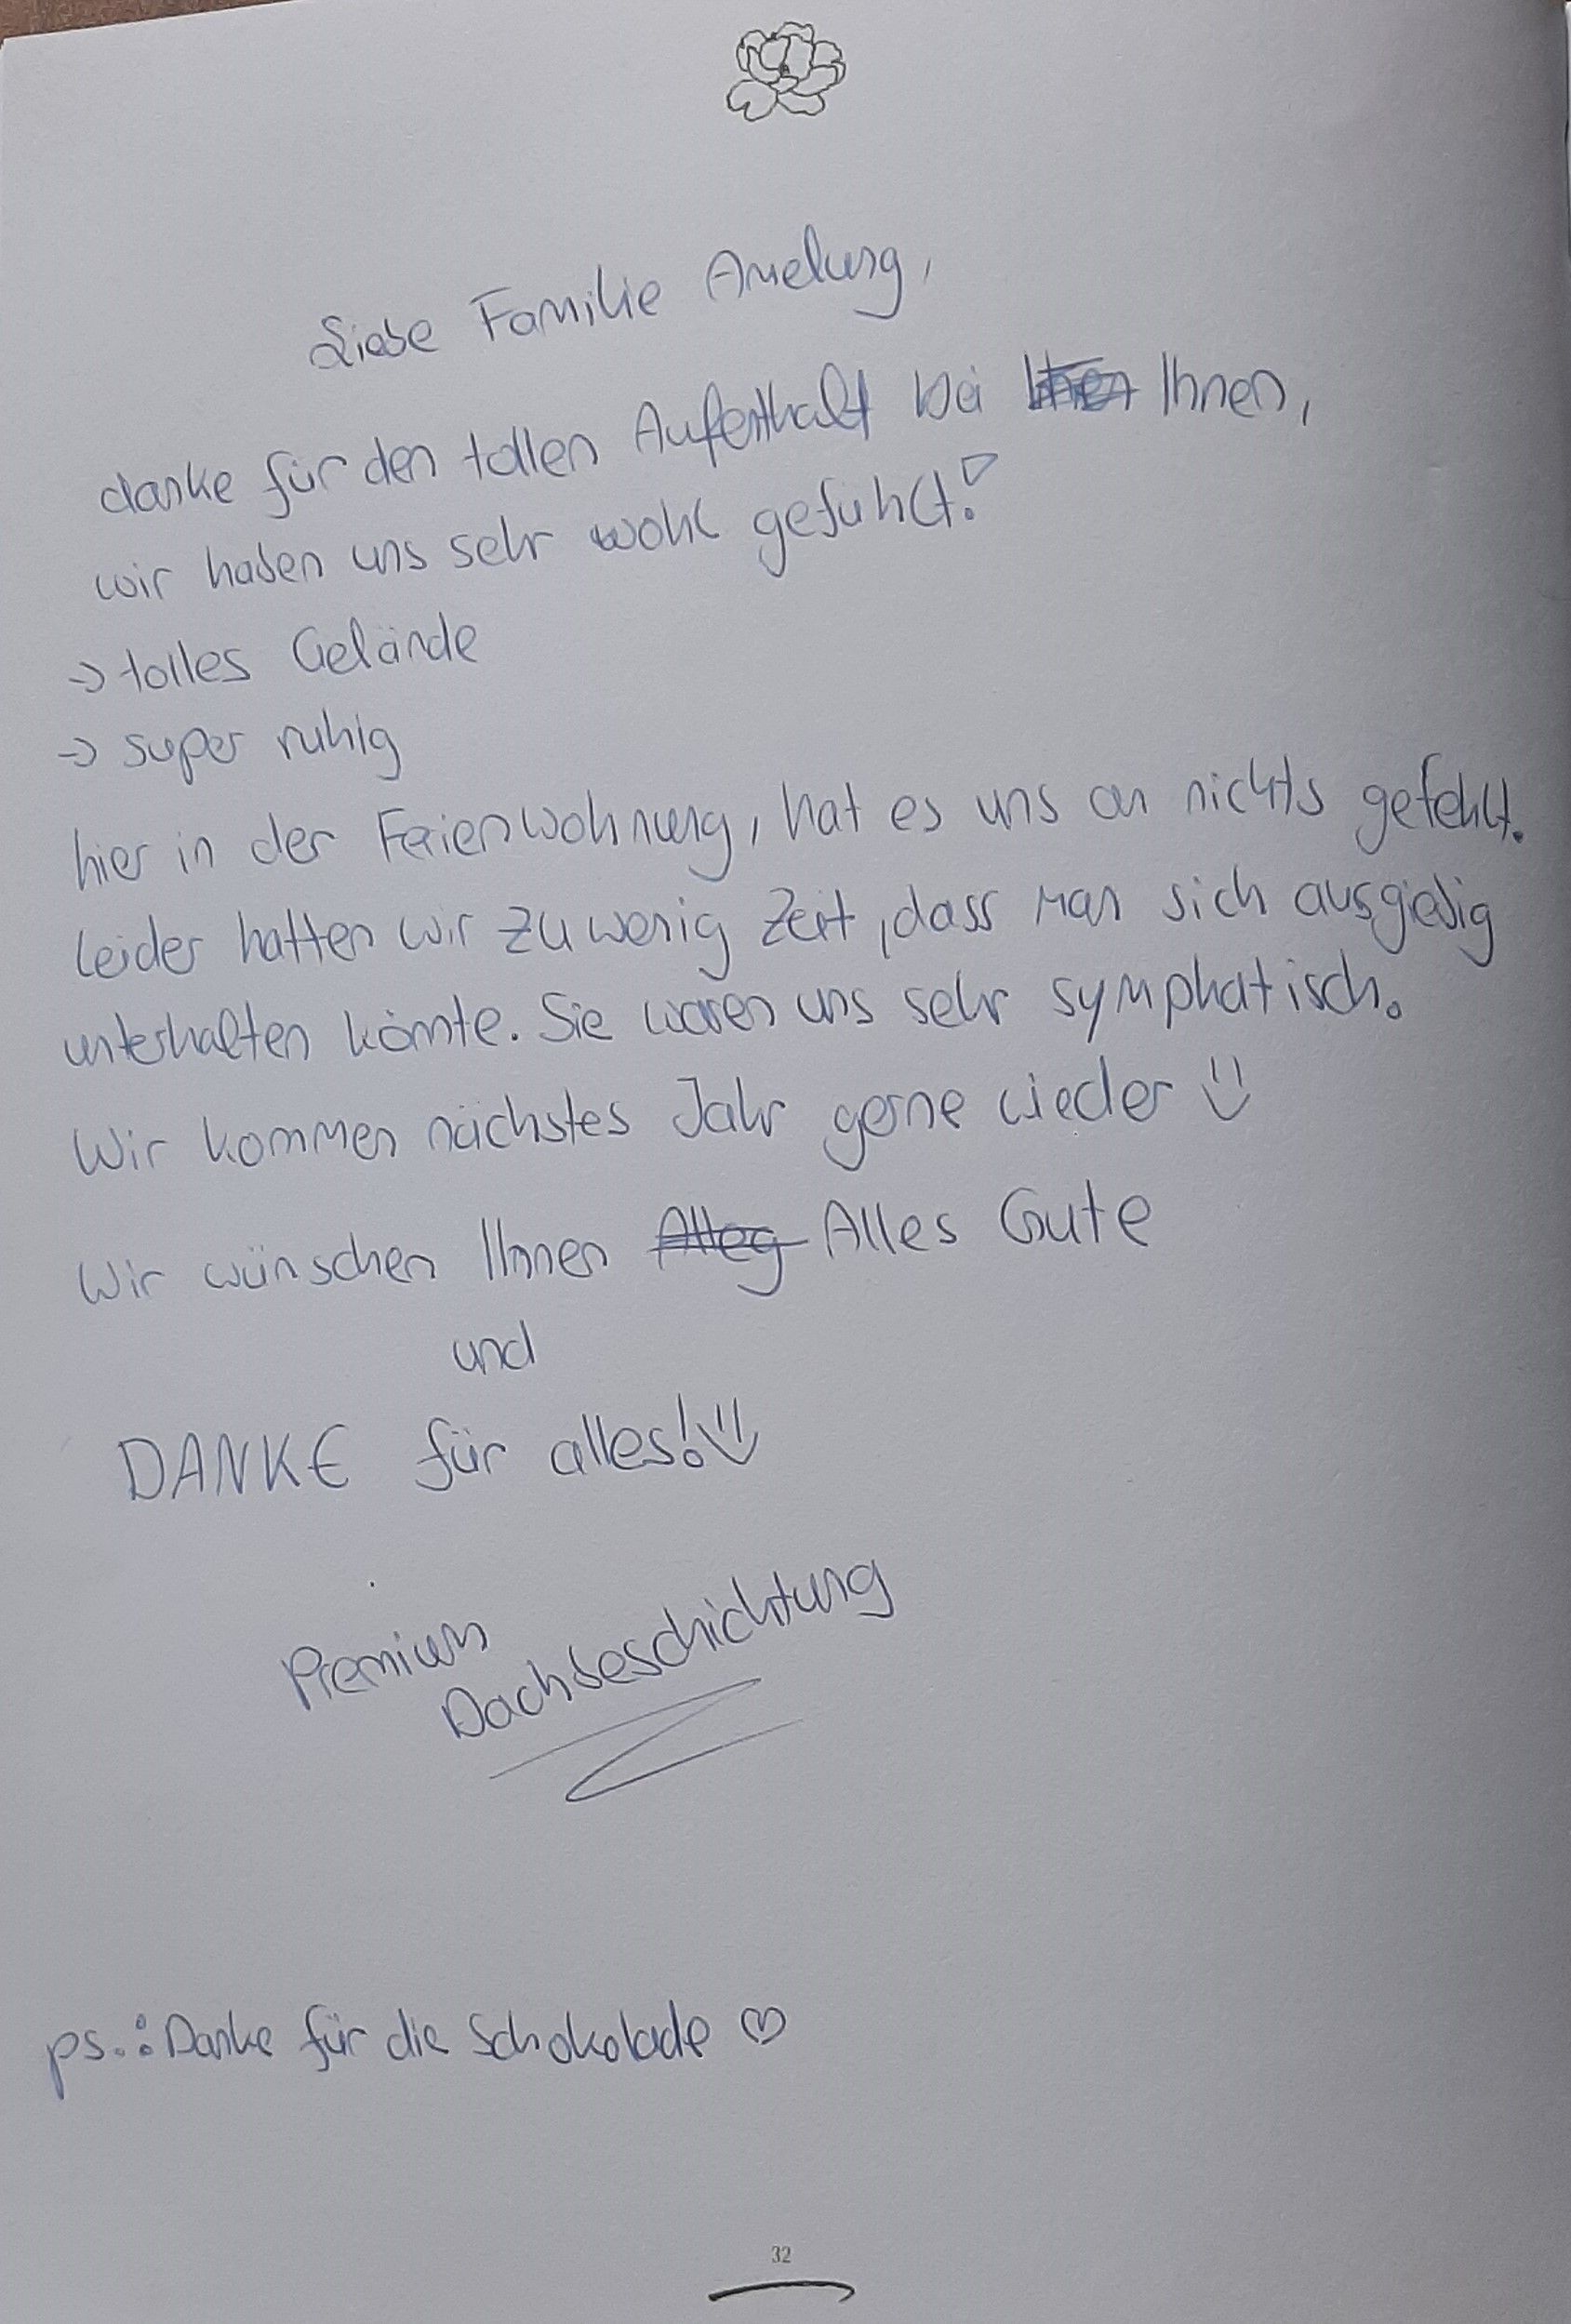 Liebe Familie Amelung,
danke für den tollen Aufenthalt bei Ihnen,
wir haben uns sehr wohl gefühlt!
→ tolles Gelände
→ super ruhig
hier in der Ferienwohnung, hat es uns an nichts gefehlt.
Leider hatten wir zu wenig Zeit, dass man sich ausgiebig
unterhalten könnte. Sie waren uns sehr symphatisch.
Wir kommen nächstes Jahr gerne wieder
Wir wünschen Ihnen Alles Gute
und
DANKE für alles!
Premium
Dachbeschichtung
ps.: Danke für die Schokolade ♡
32